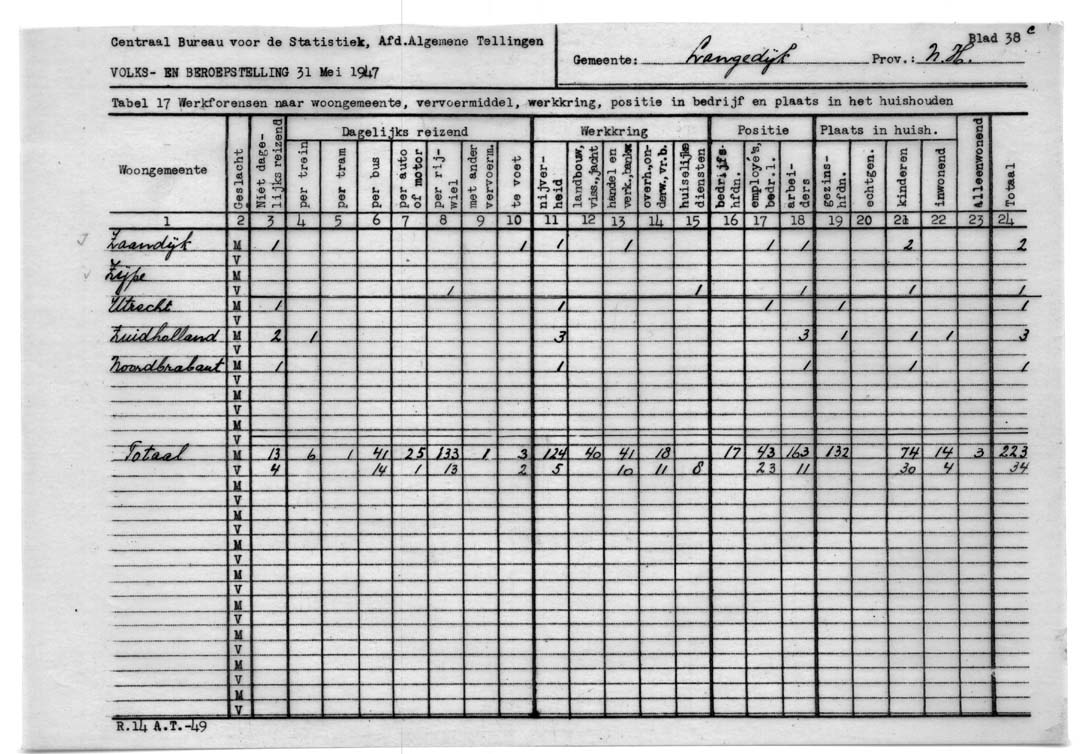 Centraal Bureau voor de Statistiek, Afd.Algemene Tellingen
VOLKS- EN BEROEPSTELLING 31 Mei 1947
Gemeente: Langedijk Prov.: N.H. Blad 38 c
Tabel 17 Werkforensen naar woongemeente, vervoermiddel, werkkring, positie in bedrijf en plaats in het huishouden
Woongemeente Geslacht Niet dage-lijks reizend Dagelijks reizend Werkkring Positie Plaats in huish. Alleenwonend Totaal
per trein per tram per bus per auto of motor per rij-wiel met ander vervoerm. te voet nijver-heid landbouw, viss.,jacht handel en verk.,bankw overh,on-derw,vr.b. huiselijke diensten bedrijfs-hfdn. employé's, bedr.l. arbei-ders gezins-hfdn. echtgen. kinderen inwonend
1 2 3 4 5 6 7 8 9 10 11 12 13 14 15 16 17 18 19 20 21 22 23 24
Zaandijk M 1 1 1 1 1 1 2 2
V
Zijpe M
V 1 1 1 1 1
Utrecht M 1 1 1 1 1
V
Zuidholland M 2 1 3 3 1 1 1 3
V
Noordbrabant M 1 1 1 1 1
V
M
V
M
V
Totaal M 13 6 1 41 25 133 1 3 124 40 41 18 17 43 163 132 74 14 3 223
V 4 14 1 13 2 5 10 11 8 23 11 30 4 34
M
V
M
V
M
V
M
V
M
V
M
V
M
V
M
V
R.14 A.T.-49